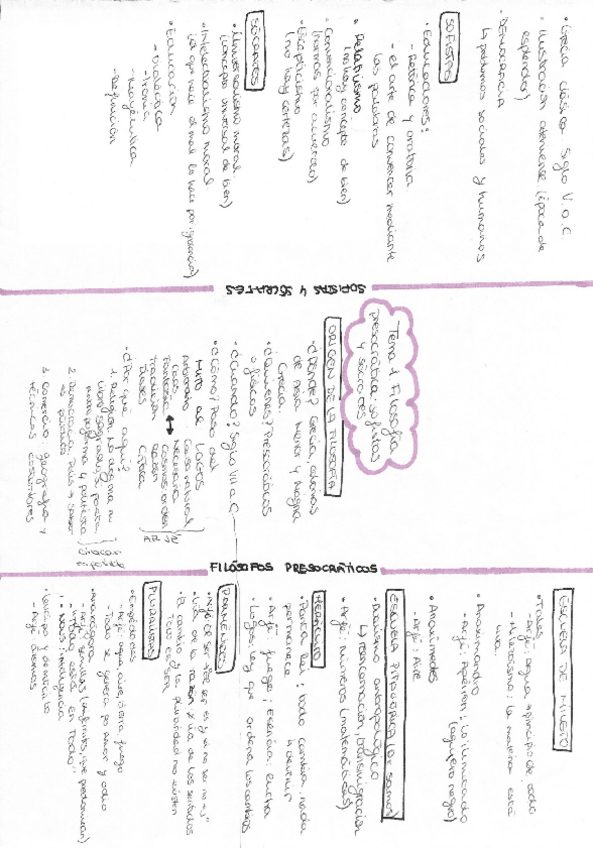 Tema 1. Filosofía
presocrática, sofistas
y sócrates
ORIGEN DE LA FILOSOFÍA
• ¿Dónde? Grecia, colonias
de Asia Menor y Magna
Grecia.
• ¿Quienes? Presocráticos
o físicos
• ¿Cuándo? Siglo VII a.C
• ¿Cómo? Paso del
MITO al LOGOS
Arbitrario
Caos
Fantasía
Tradición
Dioses
Causa natural
Necesaria
Cosmos: orden
Razón
Crítica
ARJÉ
• ¿Por qué aquí?
1. Religión: No dogma ni
libros sagrados y poetas.
Antropoforma y politeísta
2. Democracia. Polis →
es política
3. Comercio, geografía y
técnicas
FILÓSOFOS PRESOCRÁTICOS
ESCUELA DE MILETO
• Tales
- Arjé: agua → principio de todo
- Hilozoísmo: la materia está
viva
• Anaximandro
- Arjé: Ápeiron: lo ilimitado
(agujero negro)
• Anaxímedes
- Arjé: Aire
ESCUELA PITAGÓRICA (De samos)
• Dualismo antropológico
↳ reencarnación, transmigración
• Arjé: números (matemáticas)
HERÁCLITO
• Panta Rei: todo cambia, nada
permanece
↓ devenir
• Arjé: fuego; Esencia: lucha
• Logos: ley que ordena los cambios
PARMÉNIDES
• Arjé: el ser "El ser es y el no ser no es"
• Vía de la razón y vía de los sentidos
• El cambio y la pluralidad no existen
PLURALISTAS
• Empédocles
- Arjé: agua, aire, tierra, fuego
- Todo se genera por Amor y odio
• Anaxágoras
- Arjé: semillas (infinitas, que predominan)
- "Todo está en Todo"
- Nous: inteligencia
• Leucipo y demócrito
- Arjé: átomos
SOFISTAS Y SÓCRATES
• Grecia clásica Siglo V. a.C
• Ilustración ateniense (época de
esplendor)
• Democracia
↳ problemas sociales y humanos
SOFISTAS
• Educadores:
- Retórica y oratoria
- el arte de convencer mediante
las palabras
• Relativismo
(no hay concepto de bien)
- Convencionalismo
(normas por acuerdo)
• Escepticismo
(no hay certezas)
SÓCRATES
• Universalismo moral
(concepto universal de bien)
• Intelectualismo moral
(el que hace el mal lo hace por ignorancia)
• Educación
- Dialéctica
- Ironía
- Mayéutica
- Definición